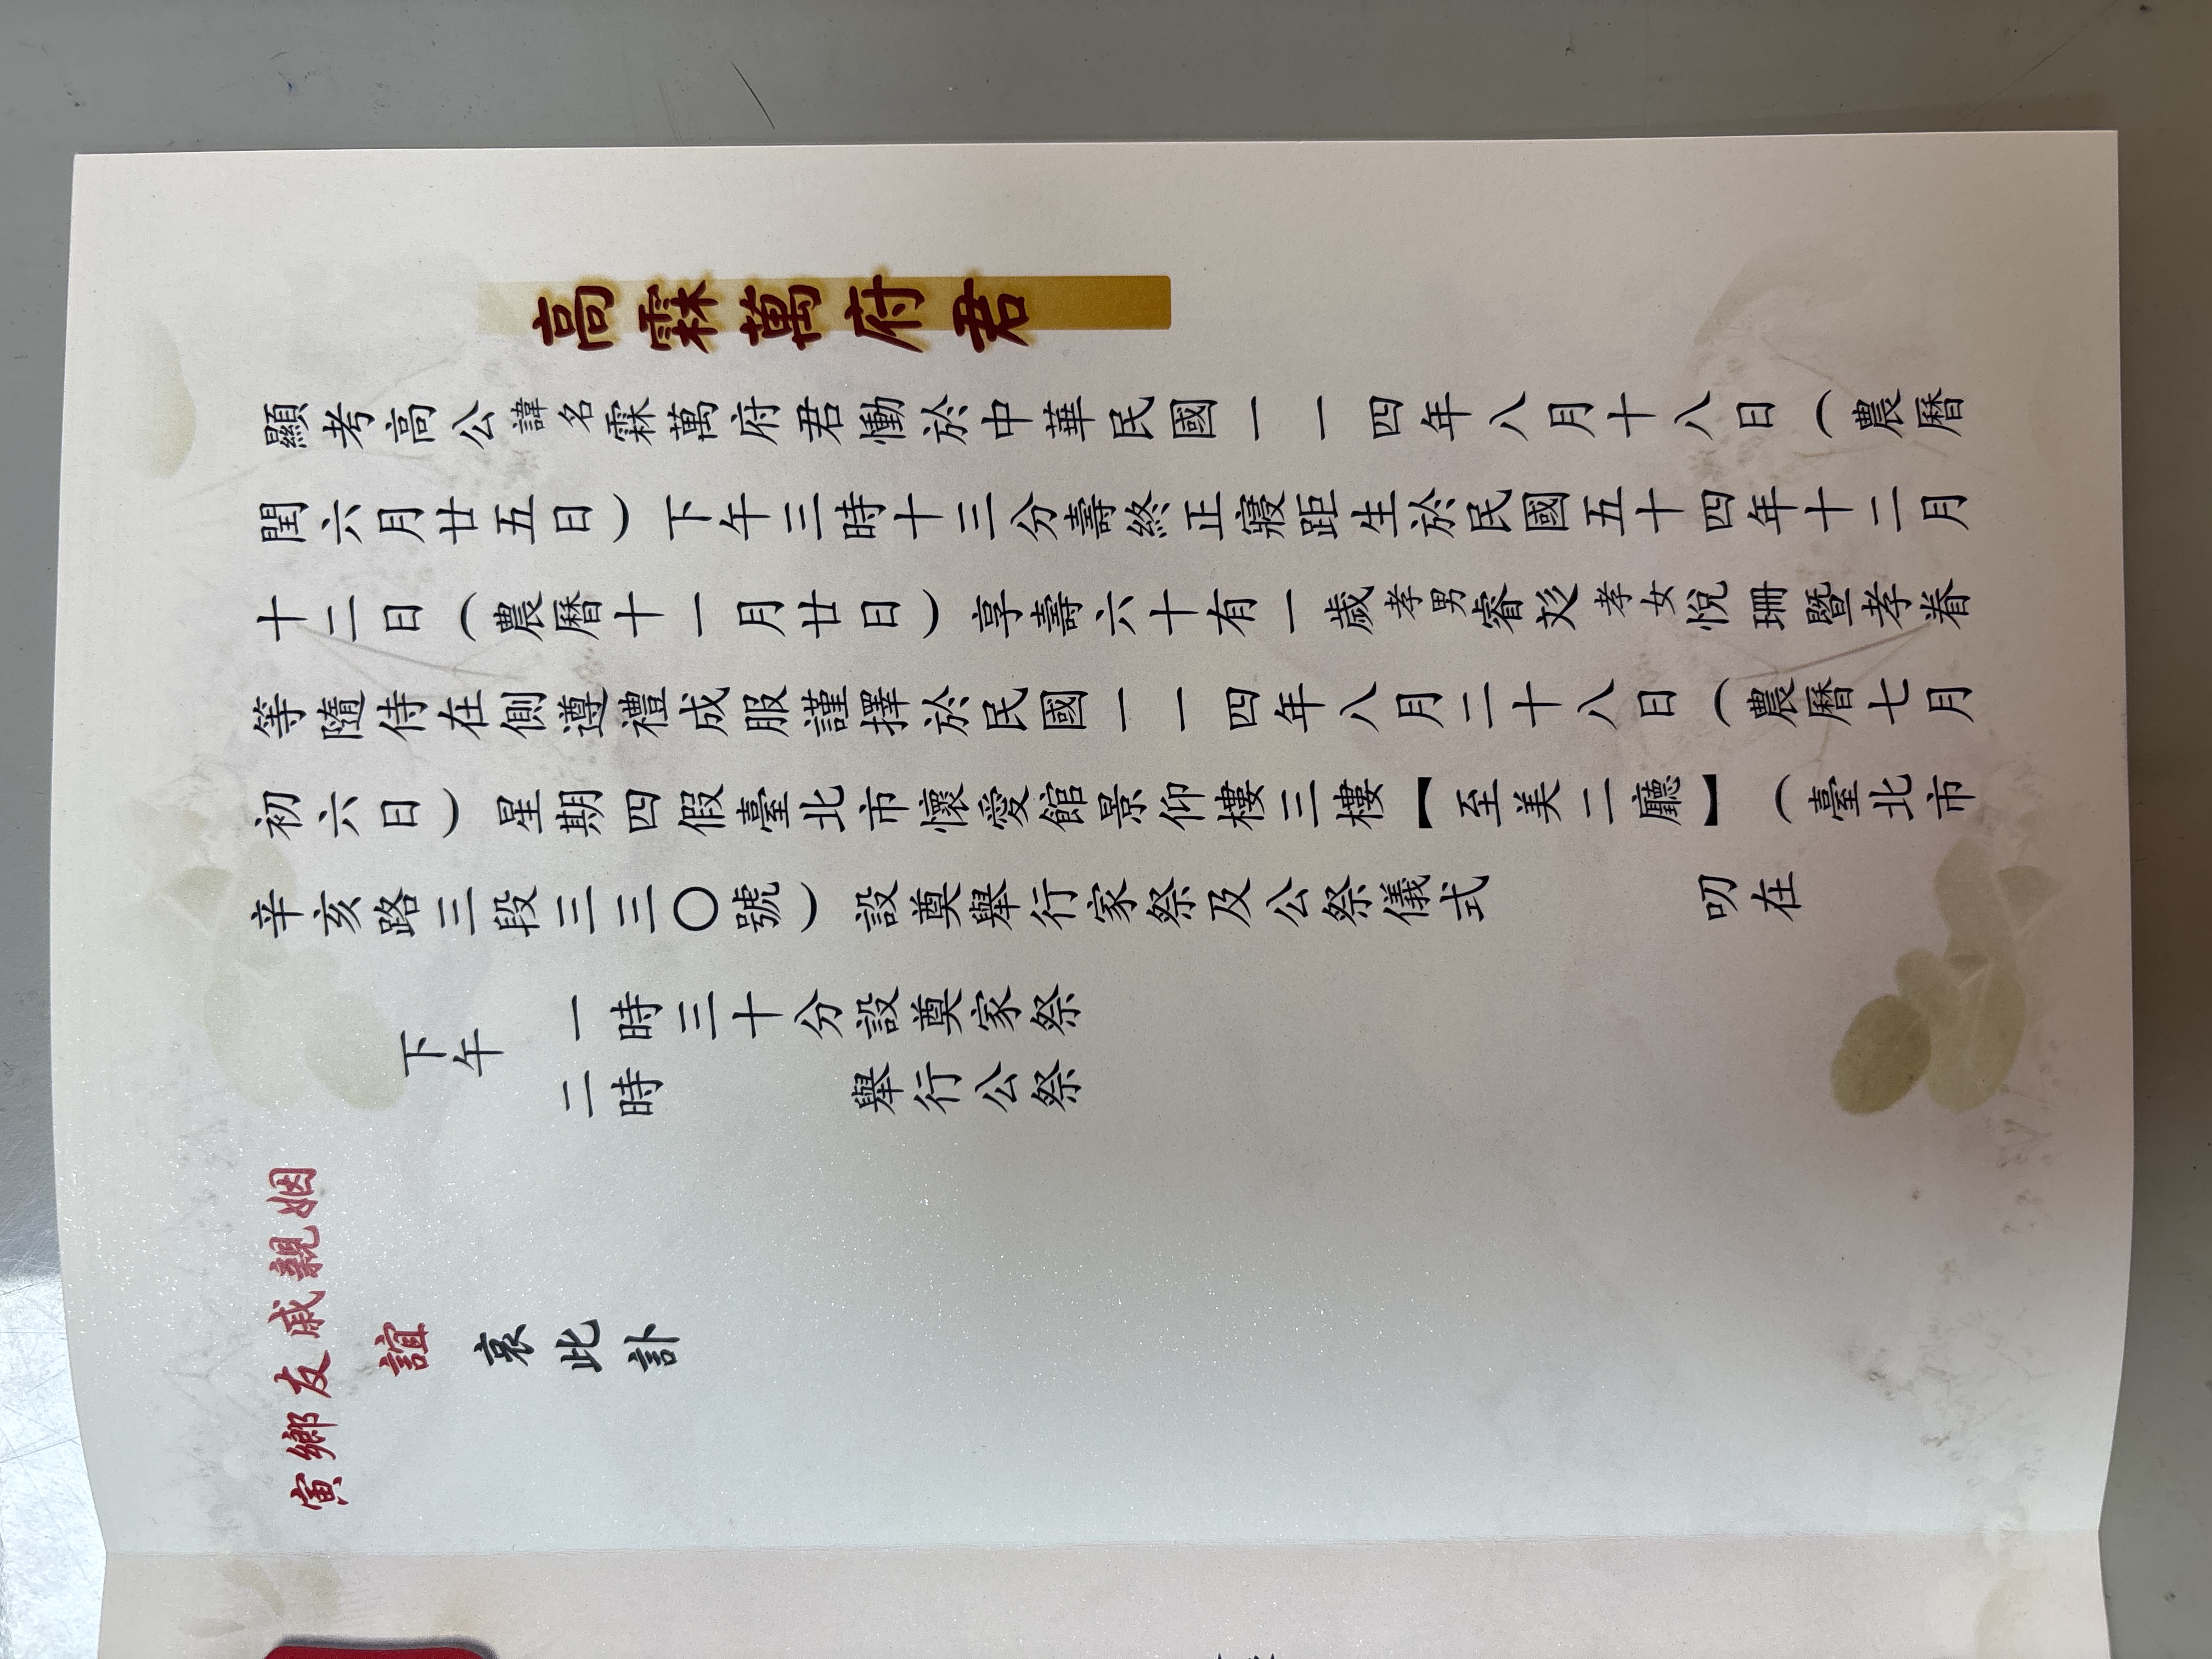 高霖萬府君
顯考高公諱名霖萬府君慟於中華民國一一四年八月十八日（農曆
閏六月廿五日）下午三時十三分壽終正寢距生於民國五十四年十二月
十二日（農曆十一月廿日）享壽六十有一歲孝男睿彣孝女悅珊暨孝眷
等隨侍在側遵禮成服謹擇於民國一一四年八月二十八日（農曆七月
初六日）星期四假臺北市懷愛館景仰樓三樓【至美二廳】（臺北市
辛亥路三段三三〇號）設奠舉行家祭及公祭儀式 叨在
下午
一時三十分設奠家祭
二時 舉行公祭
寅鄉友戚親姻
誼
哀此訃